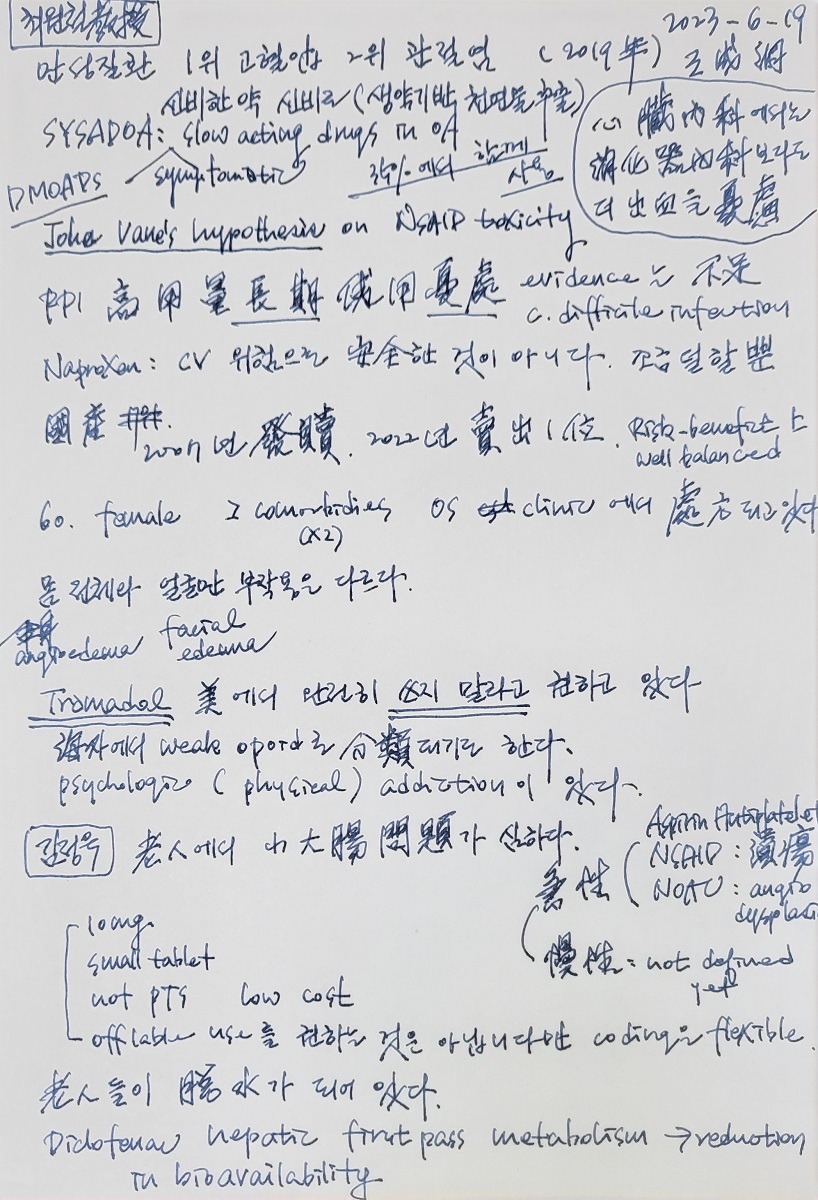 최원철 教授
2023-6-19
만성질환 1위 고혈압 2위 관절염 (2019年) 王成網
신비한 약 신비로 (생약기반 천연물추출)
SYSADOA: slow acting drugs in OA
DMOADS symptomatic 35%에서 함께 사용
心臟內科에서는
消化器內科보다도
더 出血을 憂慮
John Vane's hypothesis on NSAID toxicity
PPI 高用量長期使用憂慮 evidence는 不足
c. difficile infection
Naproxen: CV 위험으로 安全한 것이 아니다. 조금 덜할 뿐
國産
2007년 發賣. 2022년 賣出 1位. Risk-benefit上
well balanced
60. female 2 comorbidies OS clinic에서 處方되고 있다
(x2)
몸 전체와 얼굴만 부작용은 다르다.
angioedema facial
edema
Tramadol 美에서 완전히 쓰지 말라고 권하고 있다
에서 weak opioid로 分類되기도 한다.
psychologic (physical) addiction이 있다.
김정욱 老人에서 小大腸問題가 심하다.
Aspirin Antiplatelet
急性 NSAID: 潰瘍
NOAC: angio
dysplasi
慢性: not defined
yet
10mg.
small tablet
not PTS low cost
off lable use를 권하는 것은 아닙니다만 coding은 flexible.
老人들이 脫水가 되어 있다.
Diclofenac hepatic first pass metabolism → reduction
in bioavailability